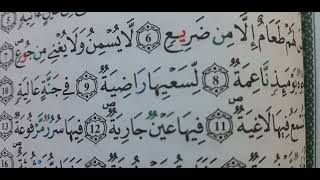 لَهُمْ طَعَامٌ إِلَّا مِن ضَرِيعٍ ٦ لَّا يُسْمِنُ وَلَا يُغْنِي مِن جُوعٍ ٧
يَوْمَئِذٍ نَّاعِمَةٌ ٨ لِّسَعْيِهَا رَاضِيَةٌ ٩ فِي جَنَّةٍ عَالِيَةٍ ١٠
تَسْمَعُ فِيهَا لَاغِيَةً ١١ فِيهَا عَيْنٌ جَارِيَةٌ ١٢ فِيهَا سُرُرٌ مَّرْفُوعَةٌ ١٣